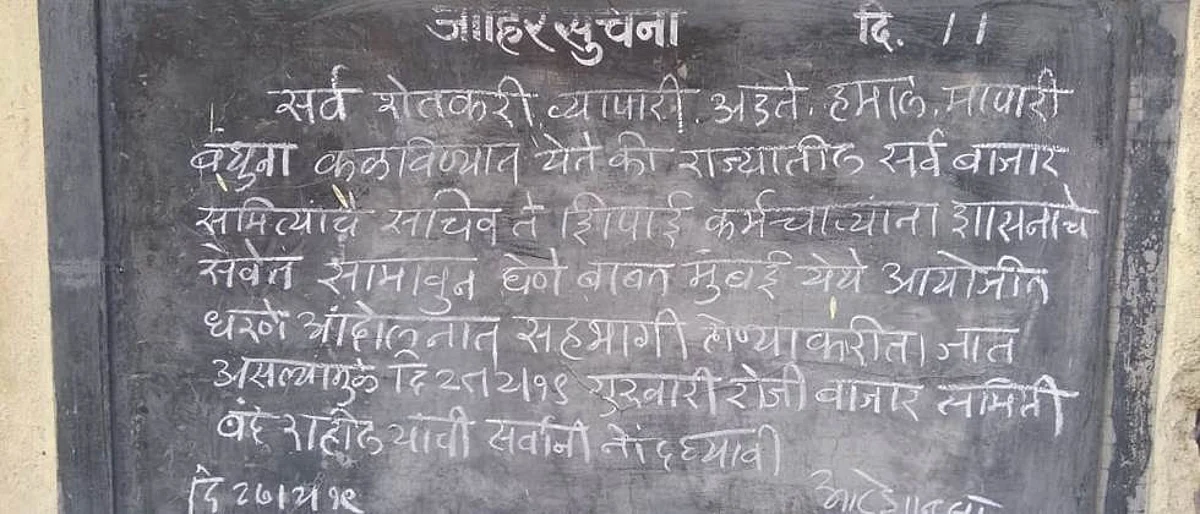 जाहिर सुचना दि. ।।
सर्व शेतकरी, व्यापारी, अडते, हमाल, मापारी
बंधुना कळविण्यात येते की राज्यातील सर्व बाजार
समित्यांचे सचिव ते शिपाई कर्मचाऱ्यांना शासनाचे
सेवेत सामावुन घेणे बाबत मुंबई येथे आयोजीत
धरणे आंदोलनात सहभागी होण्याकरीता जात
असल्यामुळे गुरुवारी रोजी बाजार समिती
बंद राहील याची सर्वांनी नोंद घ्यावी
दि